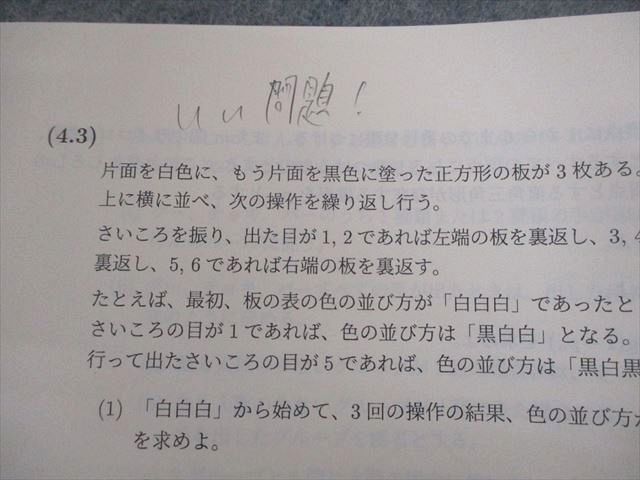 いい問題!
(4.3)
片面を白色に、もう片面を黒色に塗った正方形の板が3枚ある。
上に横に並べ、次の操作を繰り返し行う。
さいころを振り、出た目が1, 2であれば左端の板を裏返し、3, 4
裏返し、5, 6であれば右端の板を裏返す。
たとえば、最初、板の表の色の並び方が「白白白」であったと
さいころの目が1であれば、色の並び方は「黒白白」となる。
行って出たさいころの目が5であれば、色の並び方は「黒白黒
(1) 「白白白」から始めて、3回の操作の結果、色の並び方が
を求めよ。